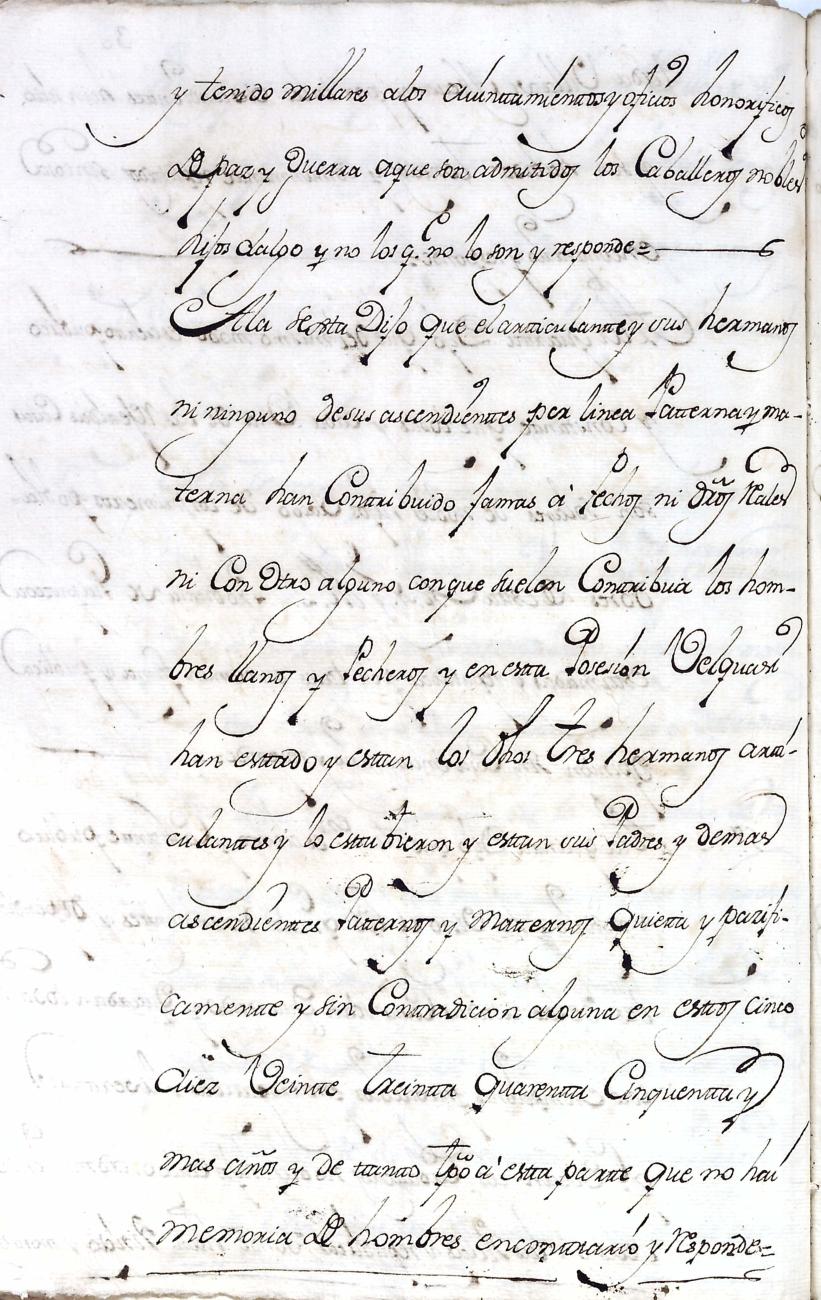 y tenido millares a los aiuntamienttos y oficios honorificos
de paz y Guerra a que son admitidos los Caballeros nobles
hijos dalgo y no los q.e no lo son y responde=
A la sesta Dijo que el articulantte y sus hermanos
ni ninguno de sus ascendienttes por linea Patterna y ma-
terna han Contribuido Jamas a pechos ni dros Rales
ni Con Otro alguno con que suelen Contribuir los hom-
bres llanos y Pecheros y en estta Posesión Velquasi
han esttado y esttan los dhos tres hermanos artti-
culanttes y lo esttubieron y esttan sus Padres y demas
ascendienttes Patternos y Matternos quietta y pazifi-
camentte y sin Contradicion alguna en esttos cinco
diez Veintte treintta quarentta Cinquentta y
mas años y de ttantto tpo a estta partte que no hai
memoria de hombres en conttrario y Responde=